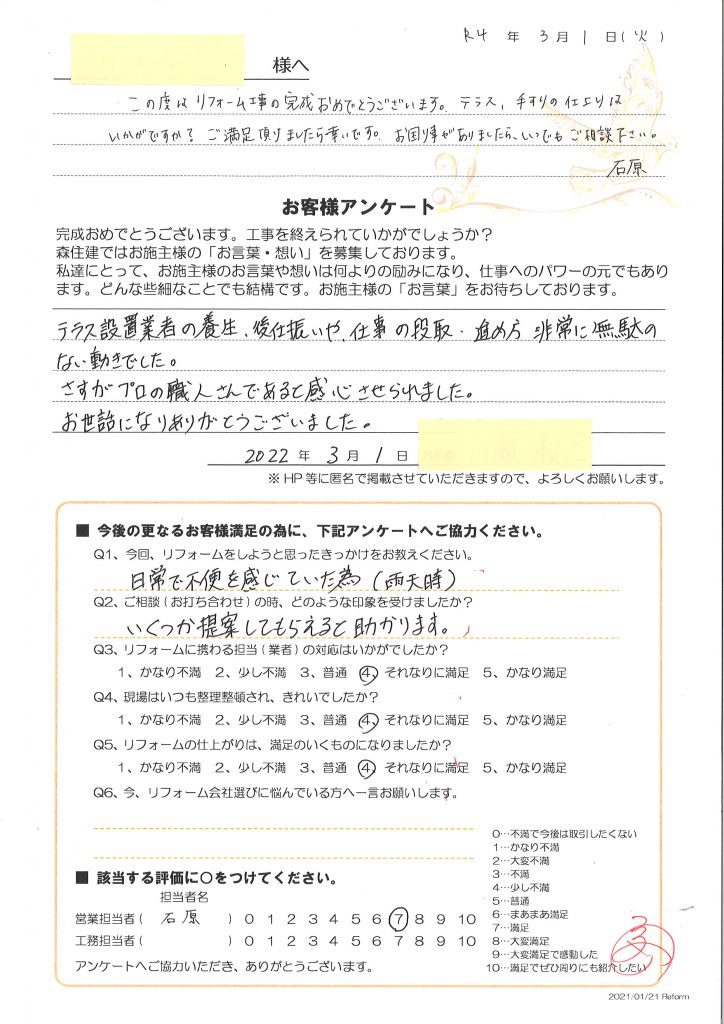 R4 年 3月 1 日(火)
様へ
この度はリフォーム工事の完成おめでとうございます。テラス、手すりの仕上りは
いかがですか? ご満足頂けましたら幸いです。お困り事がありましたら、いつでもご相談下さい。
石原
お客様アンケート
完成おめでとうございます。工事を終えられていかがでしょうか?
森住建ではお施主様の「お言葉・想い」を募集しております。
私達にとって、お施主様のお言葉や想いは何よりの励みになり、仕事へのパワーの元でもあり
ます。どんな些細なことでも結構です。お施主様の「お言葉」をお待ちしております。
テラス設置業者の養生、後仕振いや、仕事の段取・進め方 非常に無駄の
ない動きでした。
さすがプロの職人さんであると感心させられました。
お世話になりありがとうございました。
2022 年 3 月 1 日
※HP等に匿名で掲載させていただきますので、よろしくお願いします。
■ 今後の更なるお客様満足の為に、下記アンケートへご協力ください。
Q1、今回、リフォームをしようと思ったきっかけをお教えください。
日常で不便を感じていた為(雨天時)
Q2、ご相談(お打ち合わせ)の時、どのような印象を受けましたか?
いくつか提案してもらえると助かります。
Q3、リフォームに携わる担当(業者)の対応はいかがでしたか?
1、かなり不満 2、少し不満 3、普通 4、それなりに満足 5、かなり満足
Q4、現場はいつも整理整頓され、きれいでしたか?
1、かなり不満 2、少し不満 3、普通 4、それなりに満足 5、かなり満足
Q5、リフォームの仕上がりは、満足のいくものになりましたか?
1、かなり不満 2、少し不満 3、普通 4、それなりに満足 5、かなり満足
Q6、今、リフォーム会社選びに悩んでいる方へ一言お願いします。
0…不満で今後は取引したくない
1…かなり不満
2…大変不満
3…不満
4…少し不満
5…普通
6…まあまあ満足
7…満足
8…大変満足
9…大変満足で感動した
10…満足でぜひ周りにも紹介したい
■ 該当する評価に○をつけてください。
担当者名
営業担当者( 石原 ) 0 1 2 3 4 5 6 7 8 9 10
工務担当者( ) 0 1 2 3 4 5 6 7 8 9 10
アンケートへご協力いただき、ありがとうございます。
2021/01/21 Reform